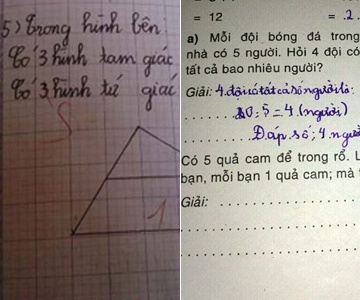 5) Trong hình bên
Có 3 hình tam giác
Có 3 hình tứ giác
1
= 12
= .2.
a) Mỗi đội bóng đá trong
nhà có 5 người. Hỏi 4 đội có
tất cả bao nhiêu người?
Giải: 4 đội có tất cả số người là:
20 : 5 = 4 (người)
Đáp số: 4 người
Có 5 quả cam để trong rổ. L
bạn, mỗi bạn 1 quả cam; mà t
Giải: